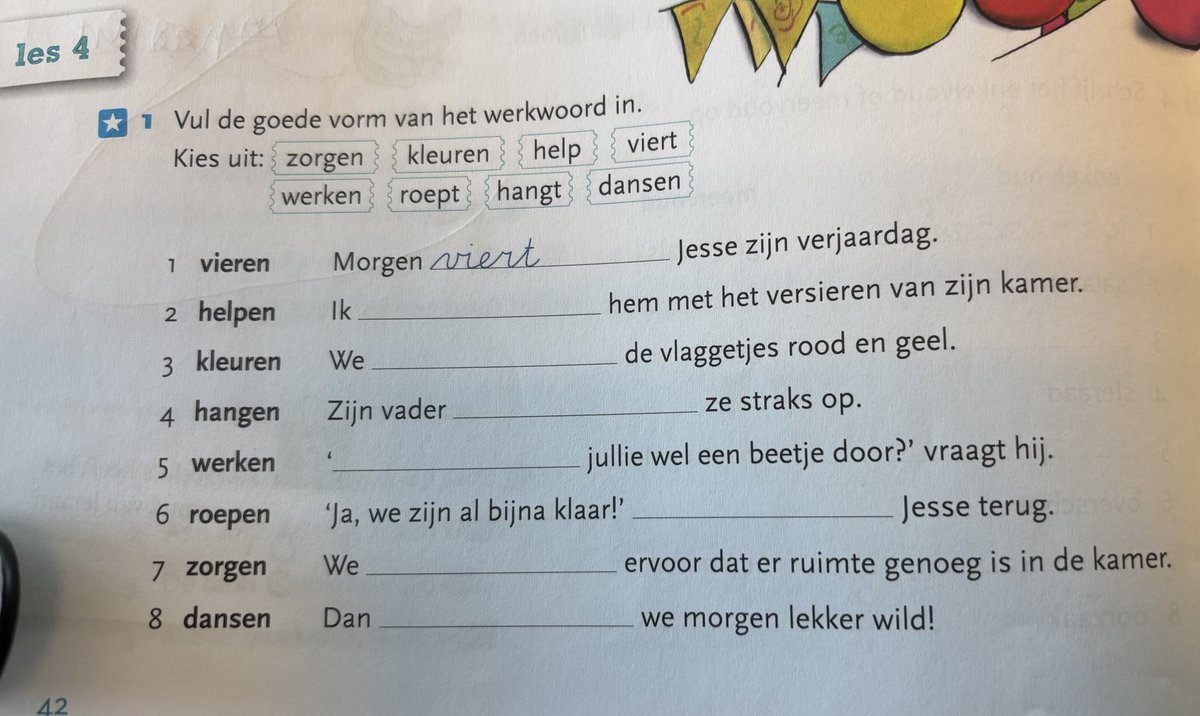 les 4
1 Vul de goede vorm van het werkwoord in.
Kies uit: zorgen kleuren help viert
werken roept hangt dansen
1 vieren Morgen viert Jesse zijn verjaardag.
2 helpen Ik ____ hem met het versieren van zijn kamer.
3 kleuren We ____ de vlaggetjes rood en geel.
4 hangen Zijn vader ____ ze straks op.
5 werken ‘____ jullie wel een beetje door?’ vraagt hij.
6 roepen ‘Ja, we zijn al bijna klaar!’ ____ Jesse terug.
7 zorgen We ____ ervoor dat er ruimte genoeg is in de kamer.
8 dansen Dan ____ we morgen lekker wild!
42